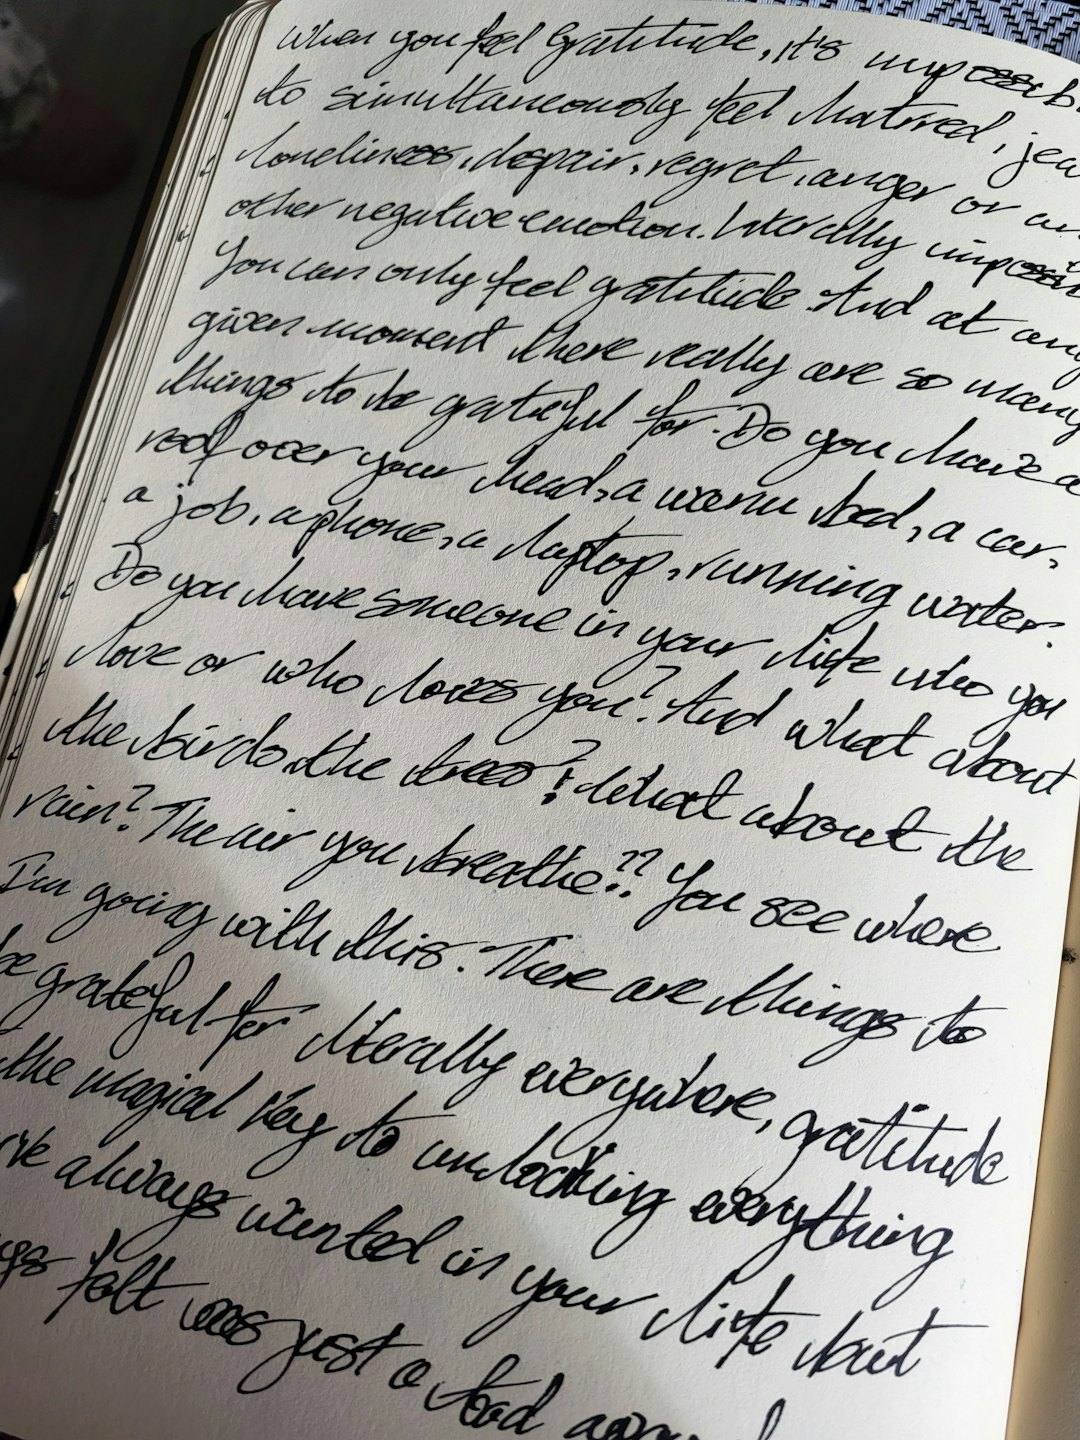 When you feel Gratitude, it's impossib
to simultaneously feel hatred, jea
loneliness, despair, regret, anger or an
other negative emotion. Literally imposs
You can only feel gratitude. And at any
given moment there really are so many
things to be grateful for. Do you have a
roof over your head, a warm bed, a car,
a job, a phone, a laptop, running water.
Do you have someone in your life who you
love or who loves you? And what about
the birds, the trees? What about the
rain? The air you breathe?? You see where
I'm going with this. There are things to
be grateful for literally everywhere, gratitude
the magical key to unlocking everything
've always wanted in your life but
gs felt was just a tad